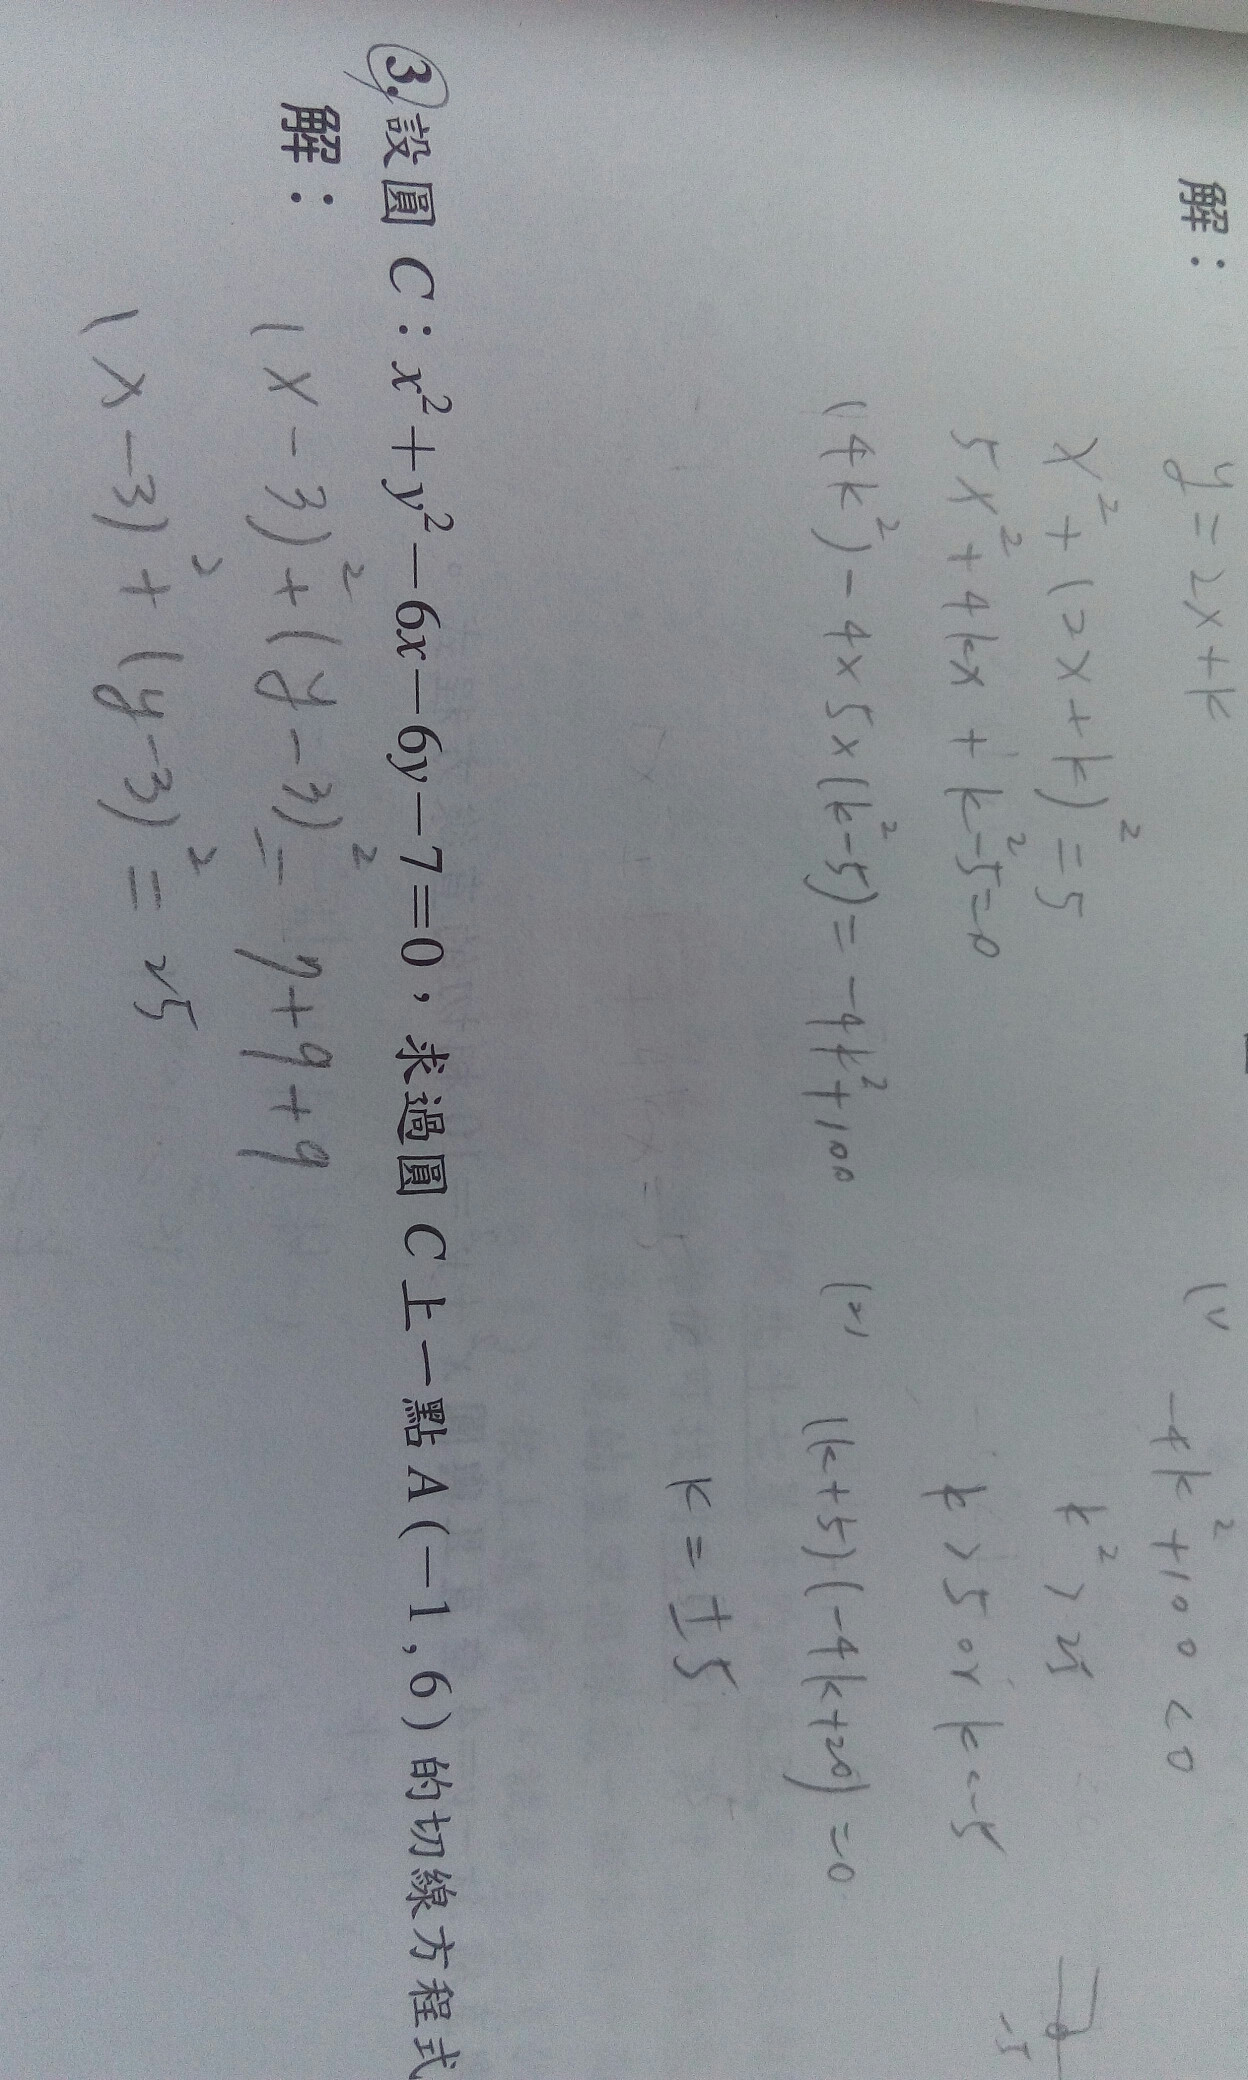 解：
y=2x+k
x²+(2x+k)²=5
5x²+4kx+k²-5=0
(4k²)-4×5×(k²-5)=-4k²+100
(1)
-4k²+100<0
k²>25
k>5 or k<-5
-5
(2)
(k+5)(-4k+20)=0
k=±5
3.設圓 C：x²+y²-6x-6y-7=0，求過圓 C 上一點 A(-1,6)的切線方程式
解：
(x-3)²+(y-3)²=7+9+9
(x-3)²+(y-3)²=25